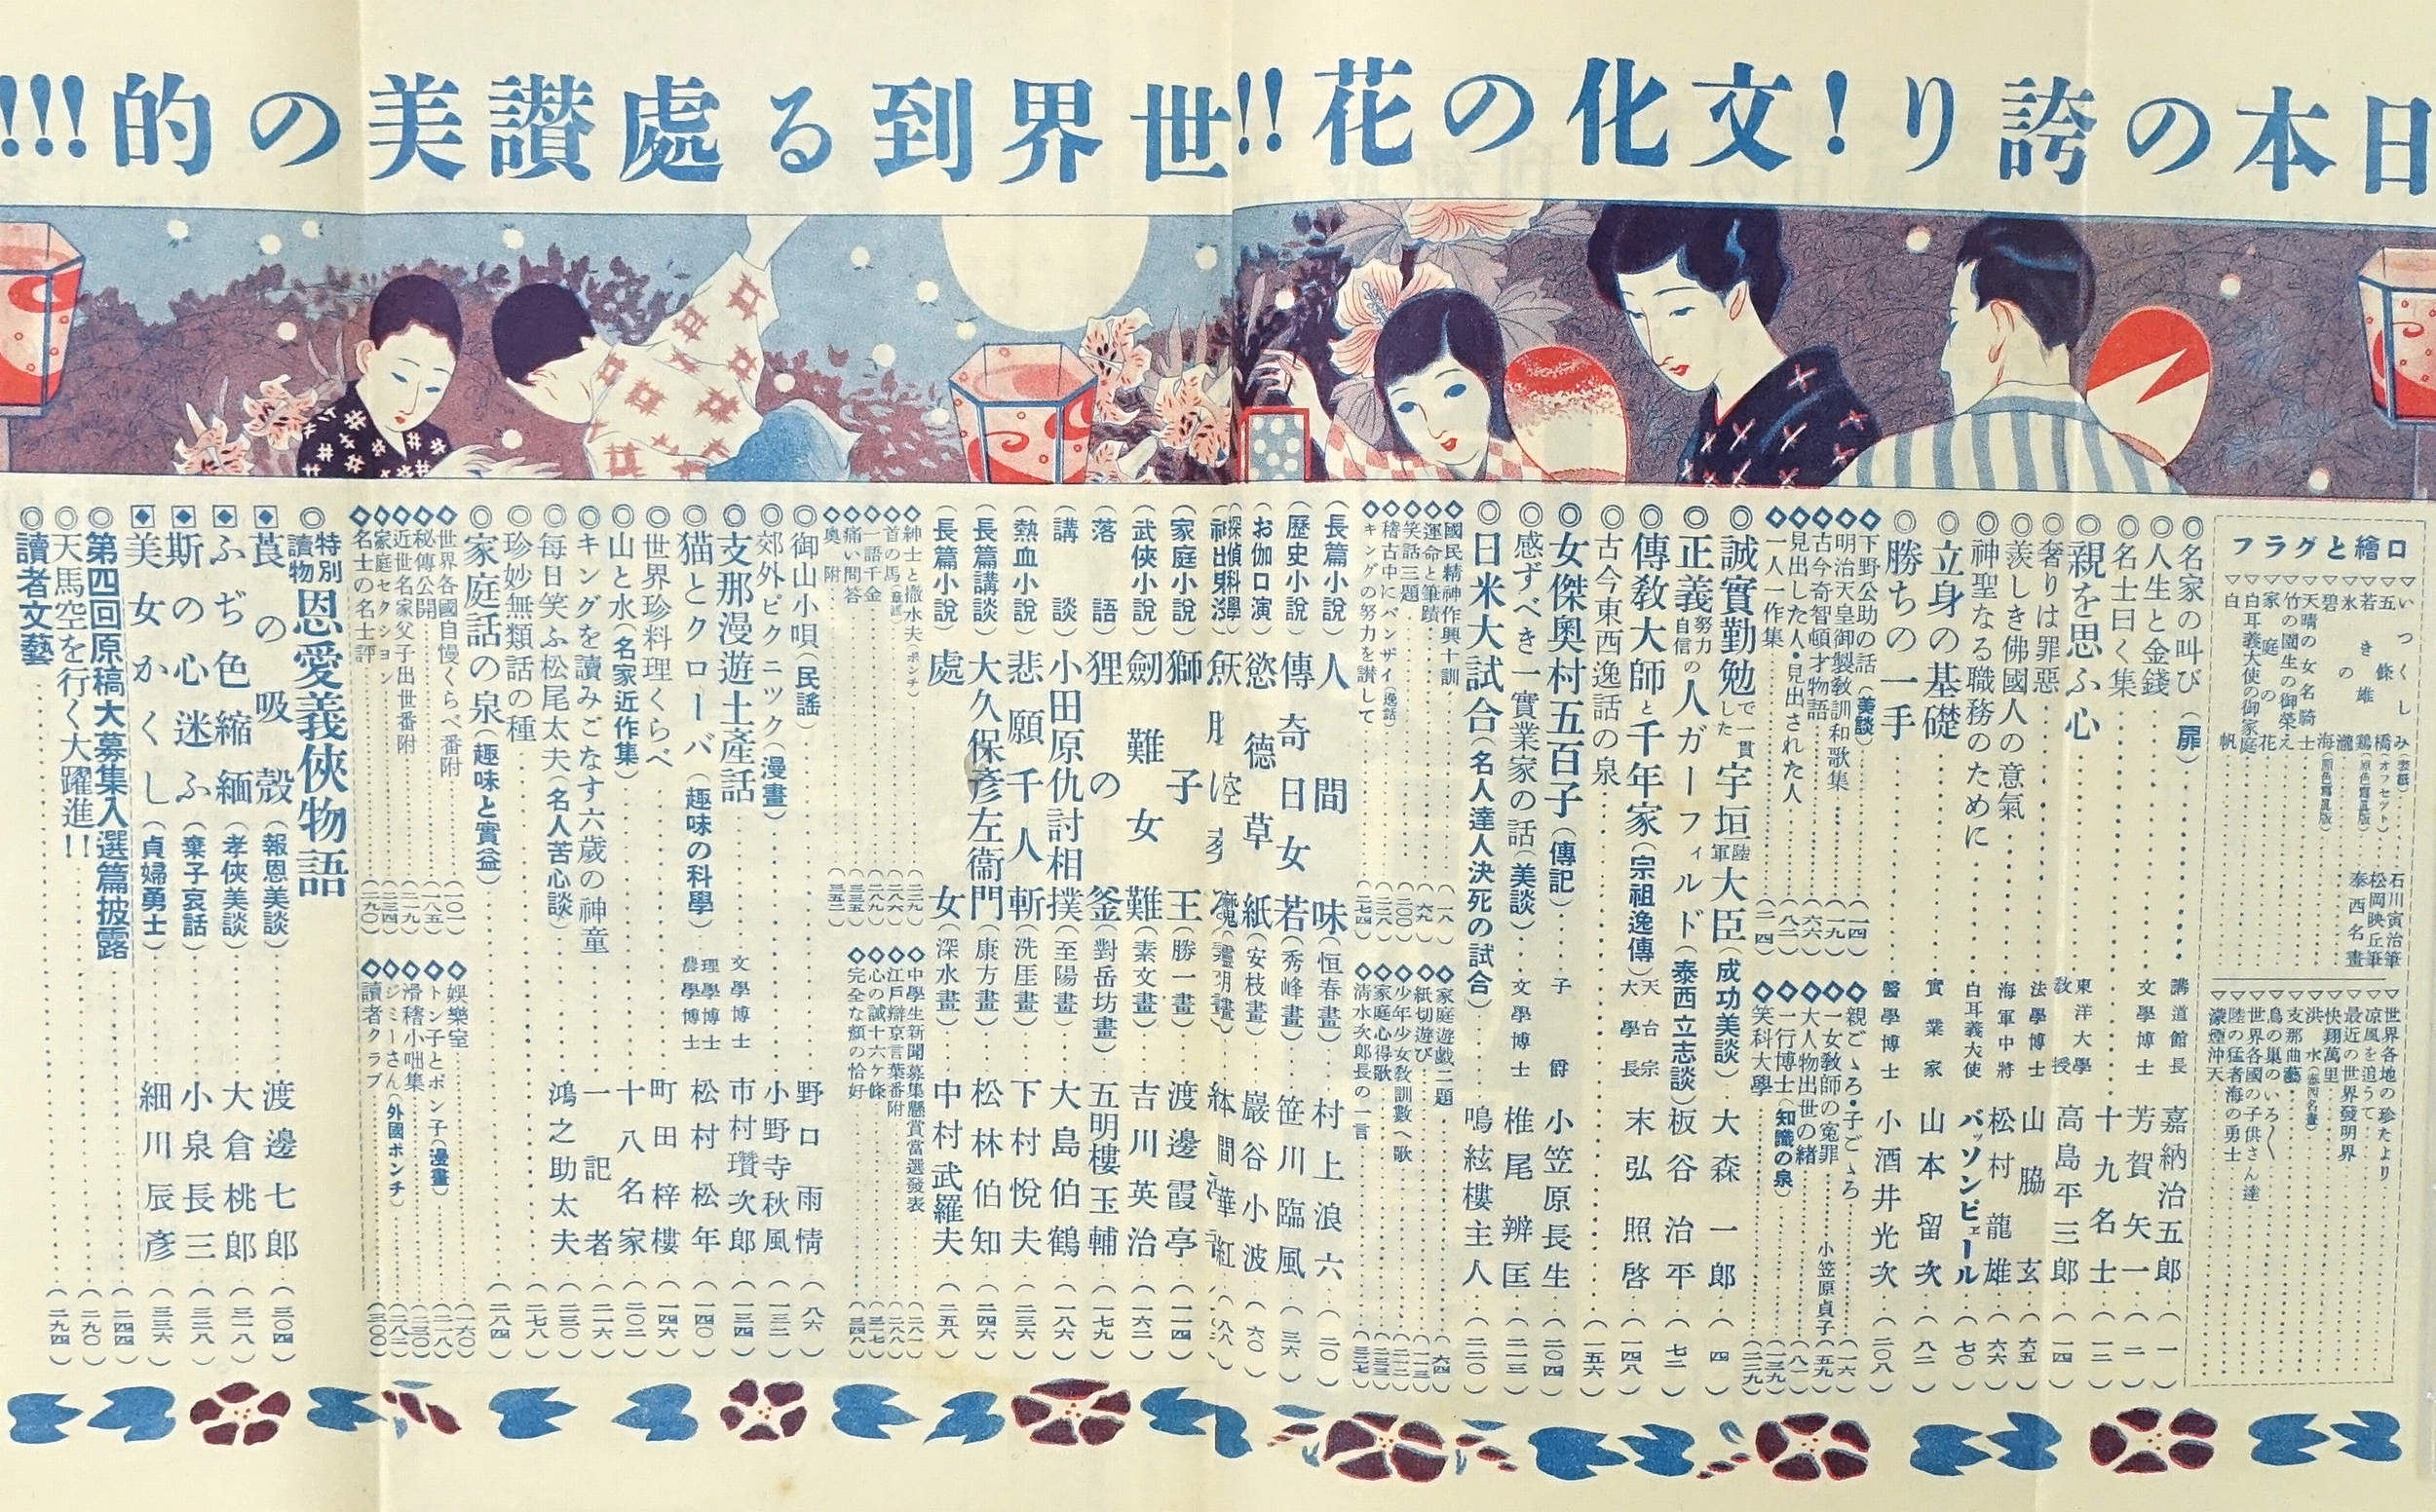 日本の誇り!文化の花!!世界到る處讃美の的!!!
口繪とグラフ
▽いつくしみ(表紙)……石川寅治筆
▽五條橋(オフセット)……松岡映丘筆
▽若き雄鶏(原色寫眞版)……泰西名畫
▽氷の瀧
▽碧海(原色寫眞版)
▽天晴の女名騎士
▽竹の園生の御榮え
▽家庭の花
▽白耳義大使の御家庭
▽白帆
▽世界各地の珍たより
▽凉風を追うて
▽最近の世界發明界
▽快翔萬里
▽洪水(泰西名畫)
▽支那曲藝
▽鳥の巣のいろ〱
▽世界各國の子供さん達
▽陸の猛者海の勇士
▽濛煙沖天
◎名家の叫び(扉)……講道館長 嘉納治五郎(一)
◎人生と金錢……文學博士 芳賀矢一(二)
◎名士曰く集……十九名士(一二)
◎親を思ふ心……東洋大學教授 高島平三郎(一四)
◎奢りは罪惡……法學博士 山脇玄(六五)
◎羨しき佛國人の意氣……海軍中將 松村龍雄(六六)
◎神聖なる職務のために……白耳義大使 バッソンピエール(七〇)
◎立身の基礎……實業家 山本留次(八二)
◎勝ちの一手……醫學博士 小酒井光次(二〇八)
◆下野公助の話(美談)……(一四)
◆明治天皇御製敎訓和歌集……(一九)
◆古今奇智頓才物語……(六六)
◆見出した人・見出された人……(八二)
◆一人一作集……(二一四)
◆親ごゝろ・子ごゝろ……(一六)
◆一女敎師の寃罪……小笠原貞子(五九)
◆大人物出世の緒……(八一)
◆一行博士(知識の泉)……(一三九)
◆笑科大學……(二三九)
◎誠實勤勉で一貫した宇垣陸軍大臣(成功美談)……大森一郎(四)
◎正義努力自信の人ガーフィルド(泰西立志談)……板谷治平(七二)
◎傳敎大師と千年家(宗祖逸傳)……天台宗大學長 末弘照啓(一四八)
◎古今東西逸話の泉……(一五六)
◎女傑奥村五百子(傳記)……子爵 小笠原長生(二〇四)
◎感ずべき一實業家の話(美談)……文學博士 椎尾辨匡(二一三)
◎日米大試合(名人達人決死の試合)……鳴絃樓主人(二二〇)
◆國民精神作興十訓……(一八)
◆運命と筆蹟……(六九)
◆笑話三題……(二〇〇)
◆稽古中にバンザイ(逸話)……(二二八)
◆キングの努力を讃して……(二七四)
◆家庭遊戯二題……(六四)
◆紙切遊び……(一一三)
◆少年少女敎訓數へ歌……(二一二)
◆家庭心得歌……(二三三)
◆淸水次郎長の一言……(三二七)
(長篇小說)人間味(恒春畫)……村上浪六(二〇)
(歷史小說)傳奇日女若(秀峰畫)……笹川臨風(三六)
(お伽口演)慾德草紙(安枝畫)……巖谷小波(六〇)
(家庭小說)獅子王(勝一畫)……渡邊霞亭(一一四)
(武俠小說)劍難女難(素文畫)……吉川英治(一六二)
(落語)狸の釜(對岳坊畫)……五明樓玉輔(一七九)
(講談)小田原仇討相撲(至陽畫)……大島伯鶴(一八六)
(熱血小說)悲願千人斬(洗厓畫)……下村悅夫(二三六)
(長篇講談)大久保彥左衞門(康方畫)……松林伯知(二四六)
(長篇小說)處女(深水畫)……中村武羅夫(二五八)
◆紳士と撒水夫(ポンチ)……(二三九)
◆首の馬(童謠)……(二八六)
◆一語千金……(二八九)
◆痛い問答……(三三五)
◆奥附……(三五二)
◆中學生新聞募集懸賞當選發表……(二八一)
◆江戶辯京言葉番附……(二八八)
◆心の誠十六ヶ條……(三一七)
◆完全な顏の恰好……(三四八)
◎御山小唄(民謠)……野口雨情(八六)
◎郊外ピクニック(漫畫)……小野寺秋風(一三二)
◎支那漫遊土產話……文學博士 市村瓚次郎(一三四)
◎猫とクローバ(趣味の科學)……理學博士農學博士 松村松年(一四〇)
◎世界珍料理くらべ……町田梓樓(一四六)
◎山と水(名家近作集)……十八名家(二〇二)
◎キングを讀みこなす六歲の神童……一記者(二一六)
◎每日笑ふ松尾太夫(名人苦心談)……鴻之助太夫(二三〇)
◎珍妙無類話の種……(二七八)
◎家庭話の泉(趣味と實益)……(二八四)
◆世界各國自慢くらべ番附……(一〇一)
◆秘傳公開……(一八五)
◆近世名家父子出世番附……(二一九)
◆家庭セクション……(二三四)
◆名士の名士評……(二九〇)
◆娛樂室……(一六〇)
◆トン子とポン子(漫畫)……(二一八)
◆滑稽小咄集……(二三〇)
◆ジミーさん(外國ポンチ)……(二八二)
◆讀者クラブ……(三〇〇)
◎特別讀物恩愛義俠物語
莨の吸殼(報恩美談)……渡邊七郎(三〇四)
ふぢ色縮緬(孝俠美談)……大倉桃郎(三一八)
斯の心迷ふ(棄子哀話)……小泉長三(三二八)
美女かくし(貞婦勇士)……細川辰彥(三三六)
◎第四回原稿大募集入選篇披露……(二四四)
◎天馬空を行く大躍進!!……(二九〇)
◎讀者文藝……(二九四)